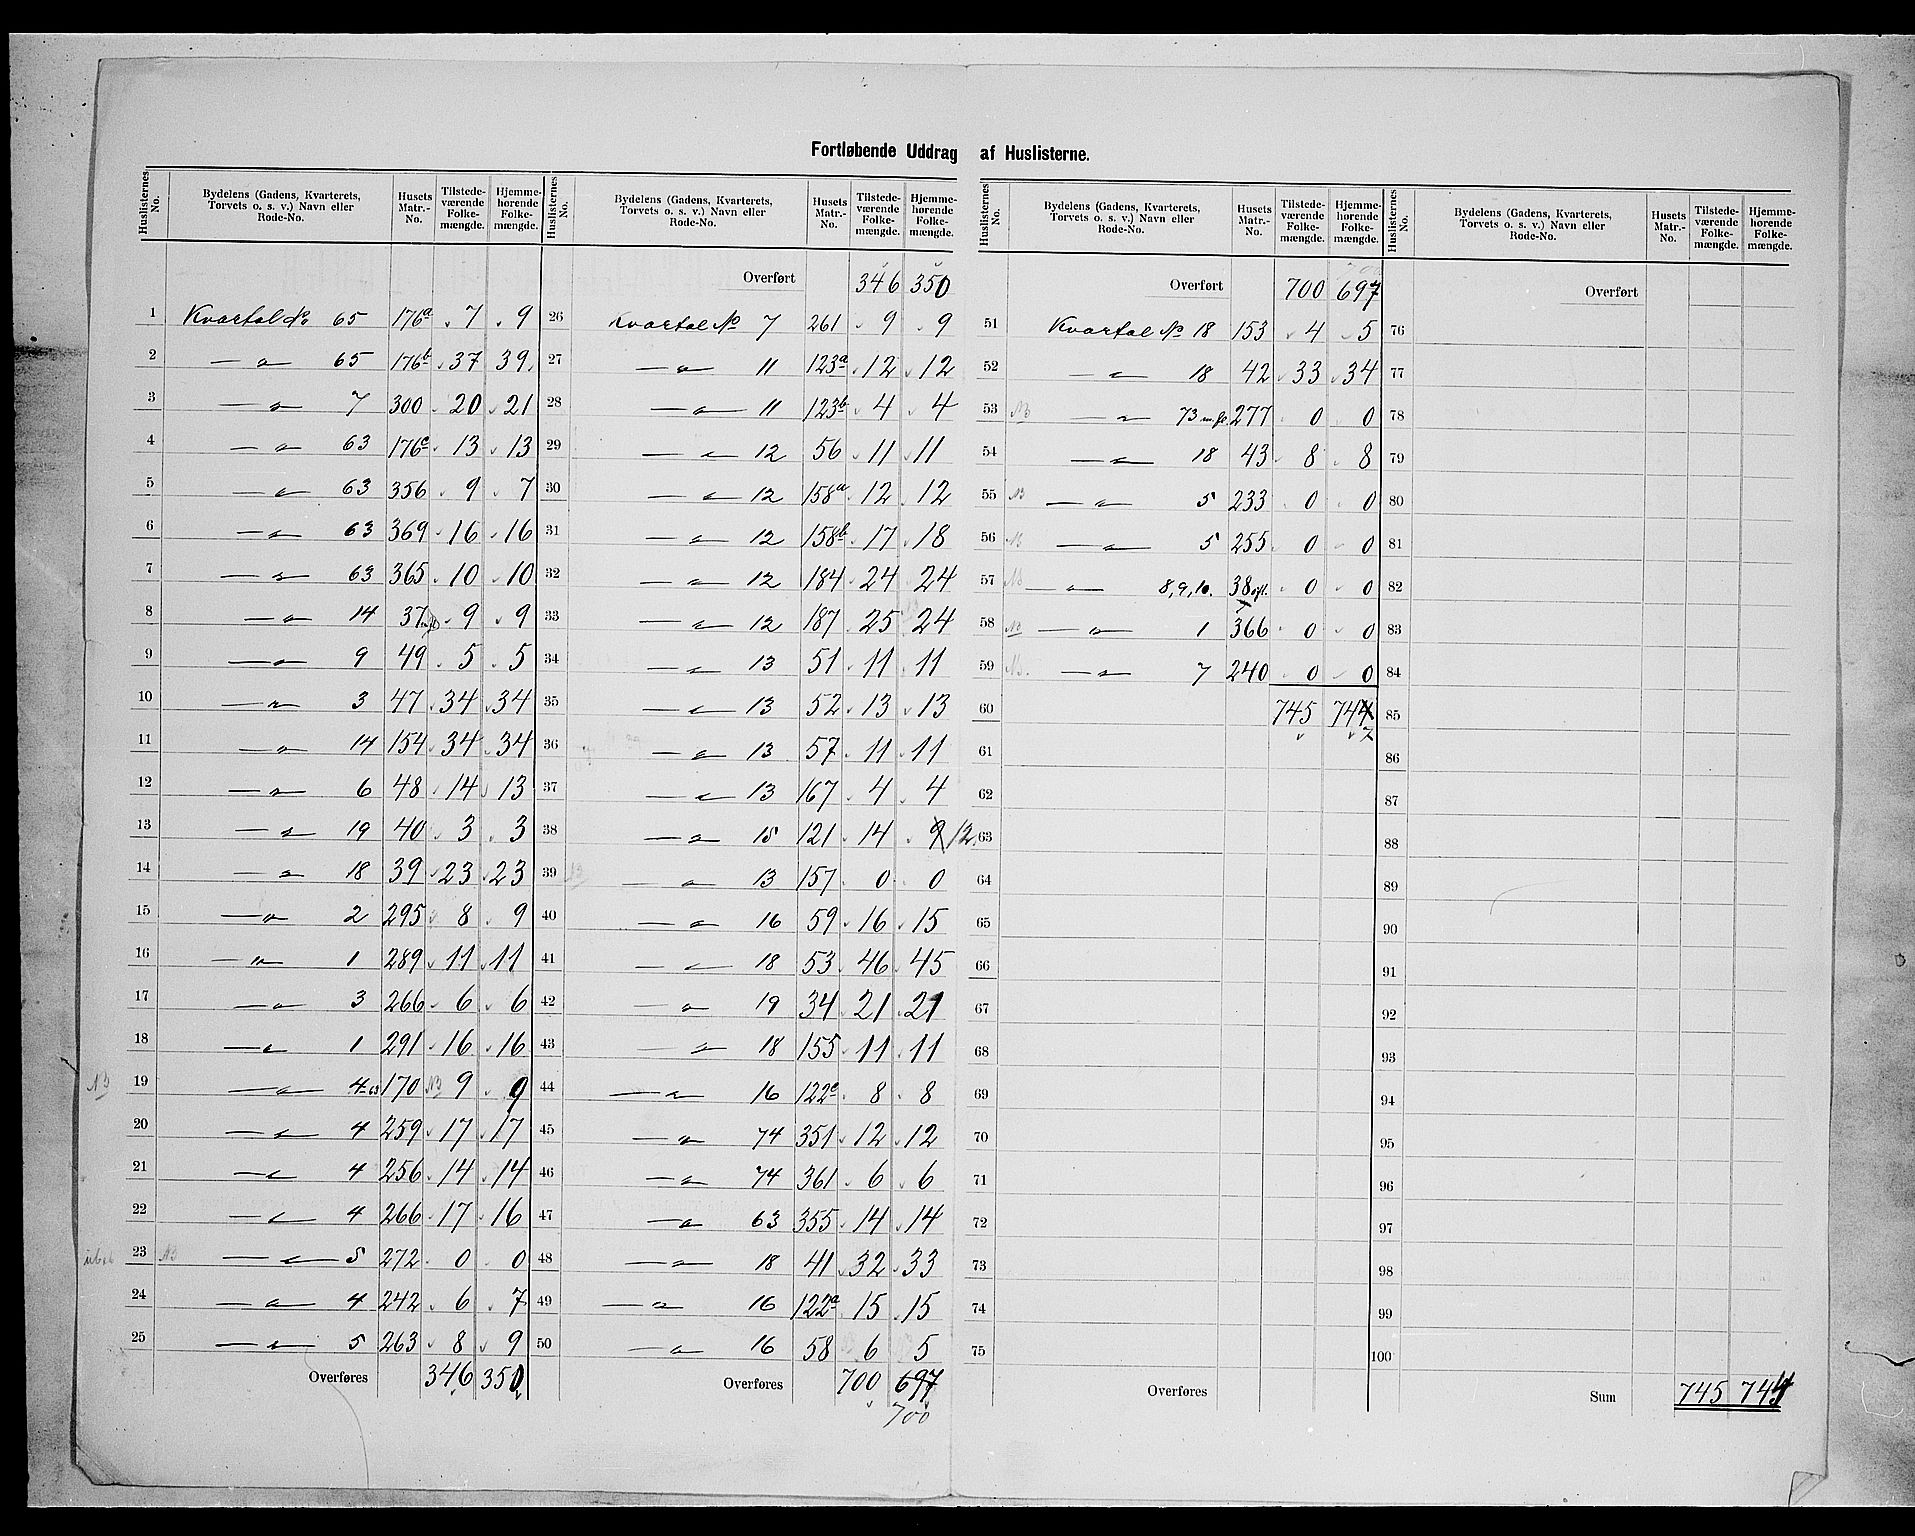 Fortløbende Uddrag af Huslisterne.
Huslisternes No. | Bydelens (Gadens, Kvarterets, Torvets o. s. v.) Navn eller Rode-No. | Husets Matr.-No. | Tilstede-værende Folke-mængde. | Hjemme-hørende Folke-mængde.
1 Kvartal No 65 176a 7 9
2 — " — 65 176b 37 39
3 — " — 7 300 20 21
4 — " — 63 176c 13 13
5 — " — 63 356 9 7
6 — " — 63 369 16 16
7 — " — 63 365 10 10
8 — " — 14 37 9 9
9 — " — 9 49 5 5
10 — " — 3 47 34 34
11 — " — 14 154 34 34
12 — " — 6 48 14 13
13 — " — 19 40 3 3
14 — " — 18 39 23 23
15 — " — 2 295 8 9
16 — " — 1 289 11 11
17 — " — 3 266 6 6
18 — " — 1 291 16 16
NB 19 — " — 4-63 170 NB 9 9
20 — " — 4 259 17 17
21 — " — 4 256 14 14
22 — " — 4 266 17 16
23 NB — " — 5 272 0 0
24 — " — 4 242 6 7
25 — " — 5 263 8 9
Overføres 346 350
Huslisternes No. | Bydelens (Gadens, Kvarterets, Torvets o. s. v.) Navn eller Rode-No. | Husets Matr.-No. | Tilstede-værende Folke-mængde. | Hjemme-hørende Folke-mængde.
Overført 346 350
26 Kvartal No 7 261 9 9
27 — " — 11 123a 12 12
28 — " — 11 123b 4 4
29 — " — 12 56 11 11
30 — " — 12 158a 12 12
31 — " — 12 158b 17 18
32 — " — 12 184 24 24
33 — " — 12 187 25 24
34 — " — 13 51 11 11
35 — " — 13 52 13 13
36 — " — 13 57 11 11
37 — " — 13 167 4 4
38 — " — 15 121 14 9 12
39 NB — " — 13 157 0 0
40 — " — 16 59 16 15
41 — " — 18 53 46 45
42 — " — 19 34 21 21
43 — " — 18 155 11 11
44 — " — 16 122c 8 8
45 — " — 74 351 12 12
46 — " — 74 361 6 6
47 — " — 63 355 14 14
48 — " — 18 41 32 33
49 — " — 16 122a 15 15
50 — " — 16 58 6 5
Overføres 700 697
700
Huslisternes No. | Bydelens (Gadens, Kvarterets, Torvets o. s. v.) Navn eller Rode-No. | Husets Matr.-No. | Tilstede-værende Folke-mængde. | Hjemme-hørende Folke-mængde.
Overført 700 697
51 Kvartal No 18 153 4 5
52 — " — 18 42 33 34
53 NB — " — 73 m.fl. 277 0 0
54 — " — 18 43 8 8
55 NB — " — 5 233 0 0
56 NB — " — 5 255 0 0
57 NB — " — 8,9,10. 38 ofl. 0 0
58 NB — " — 1 366 0 0
59 NB. — " — 7 240 0 0
60 745 744
7
61
62
63
64
65
66
67
68
69
70
71
72
73
74
75
Overføres
Huslisternes No. | Bydelens (Gadens, Kvarterets, Torvets o. s. v.) Navn eller Rode-No. | Husets Matr.-No. | Tilstede-værende Folke-mængde. | Hjemme-hørende Folke-mængde.
Overført
76
77
78
79
80
81
82
83
84
85
86
87
88
89
90
91
92
93
94
95
96
97
98
99
100
Sum 745 744